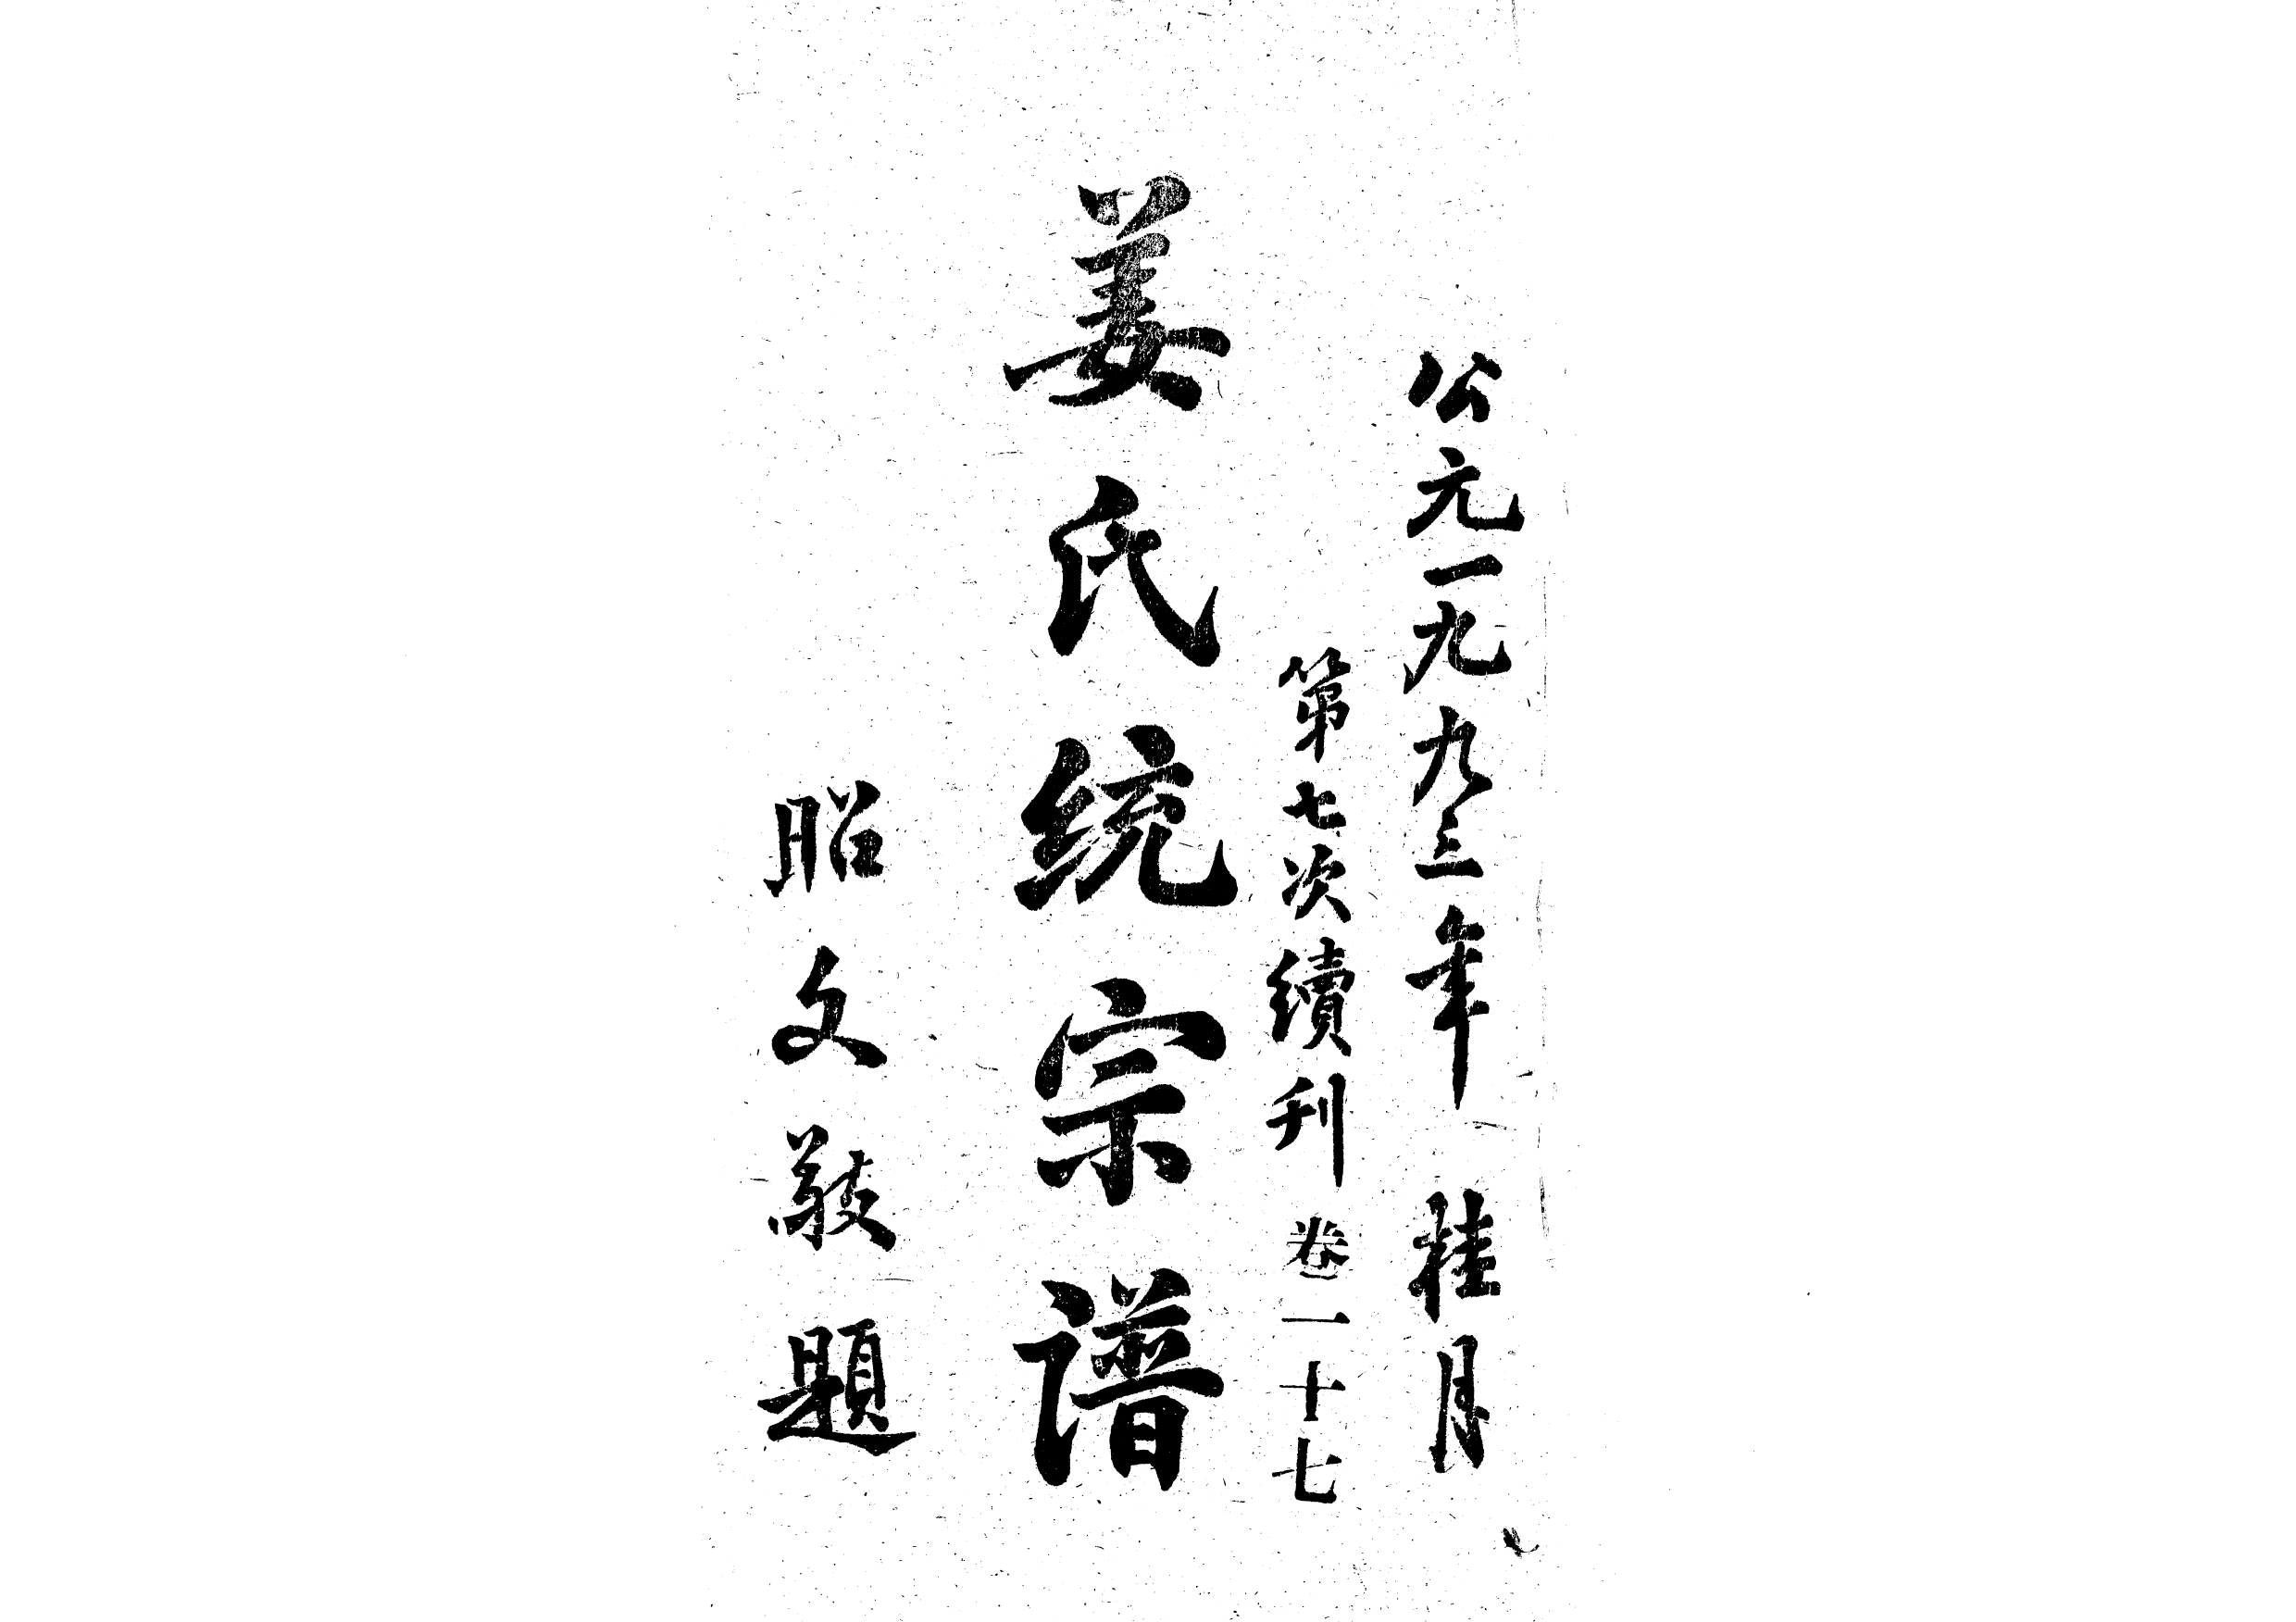 公元一九九三年 桂月
第七次續刊 卷一十七
姜氏统宗谱
昭文敬題